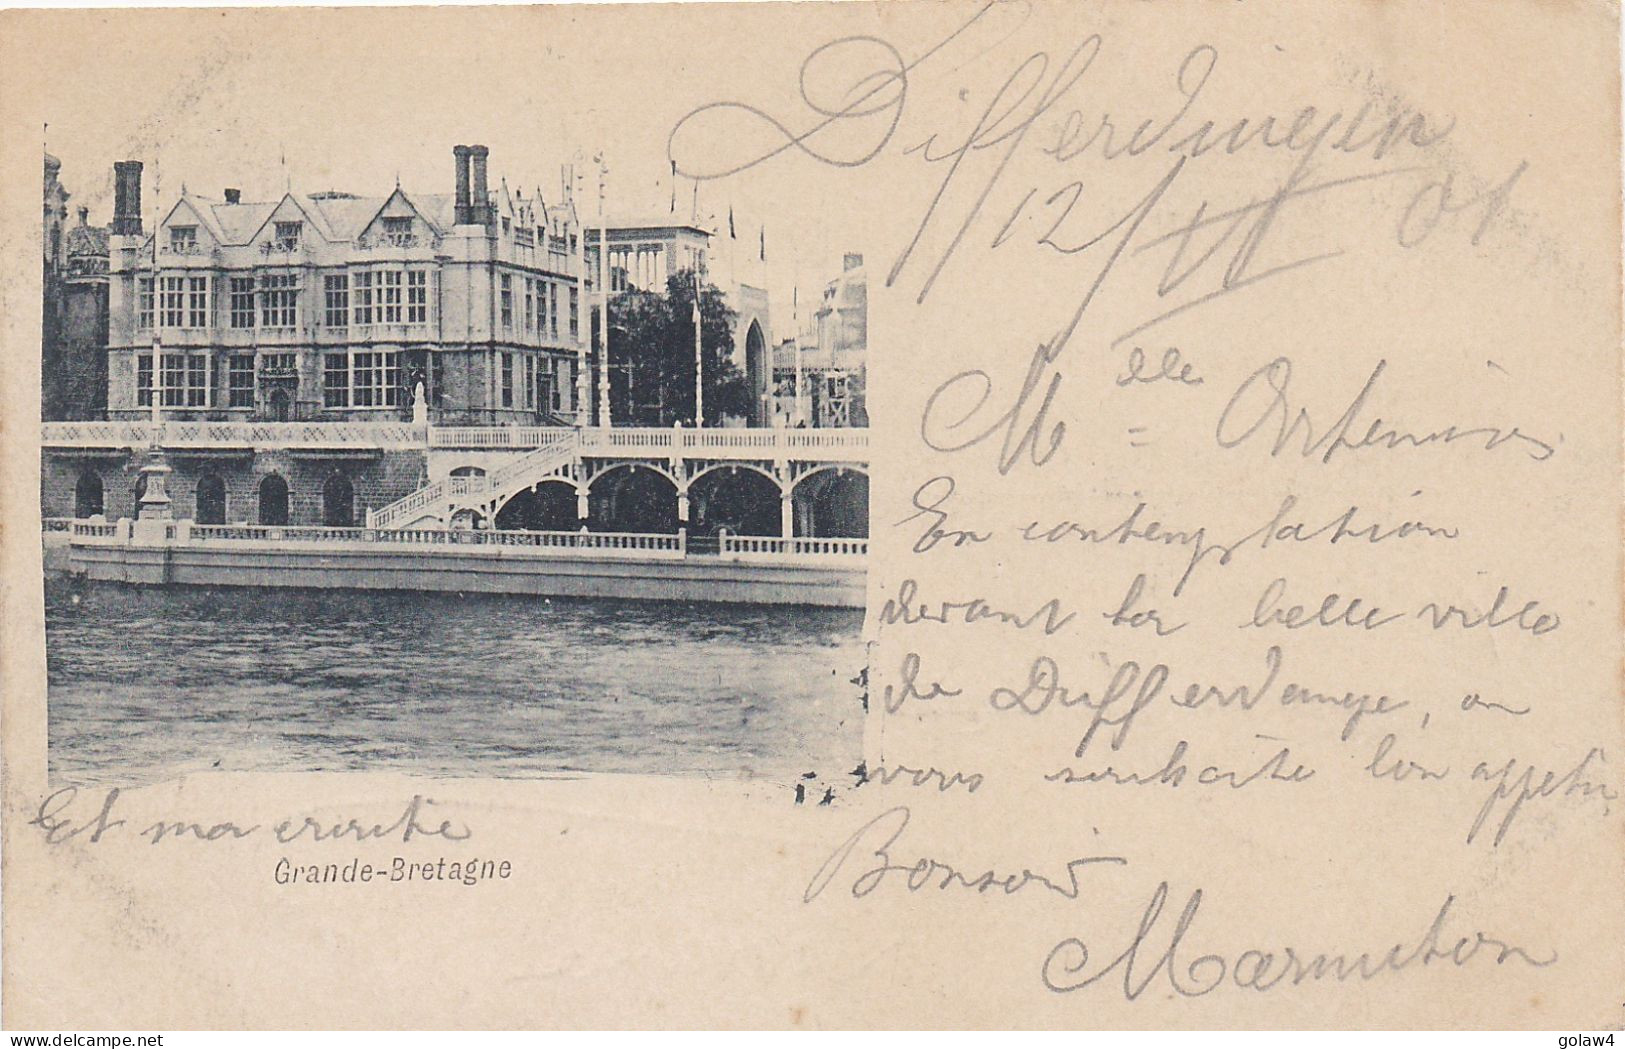 Differdingen
12/VI 01
Mlle Artémise
En contemplation
devant la belle ville
de Differdange, on
vous souhaite bon appétit
Bonsoir
Marmiton
Et ma cruche
Grande-Bretagne
delcampe.net
golaw4